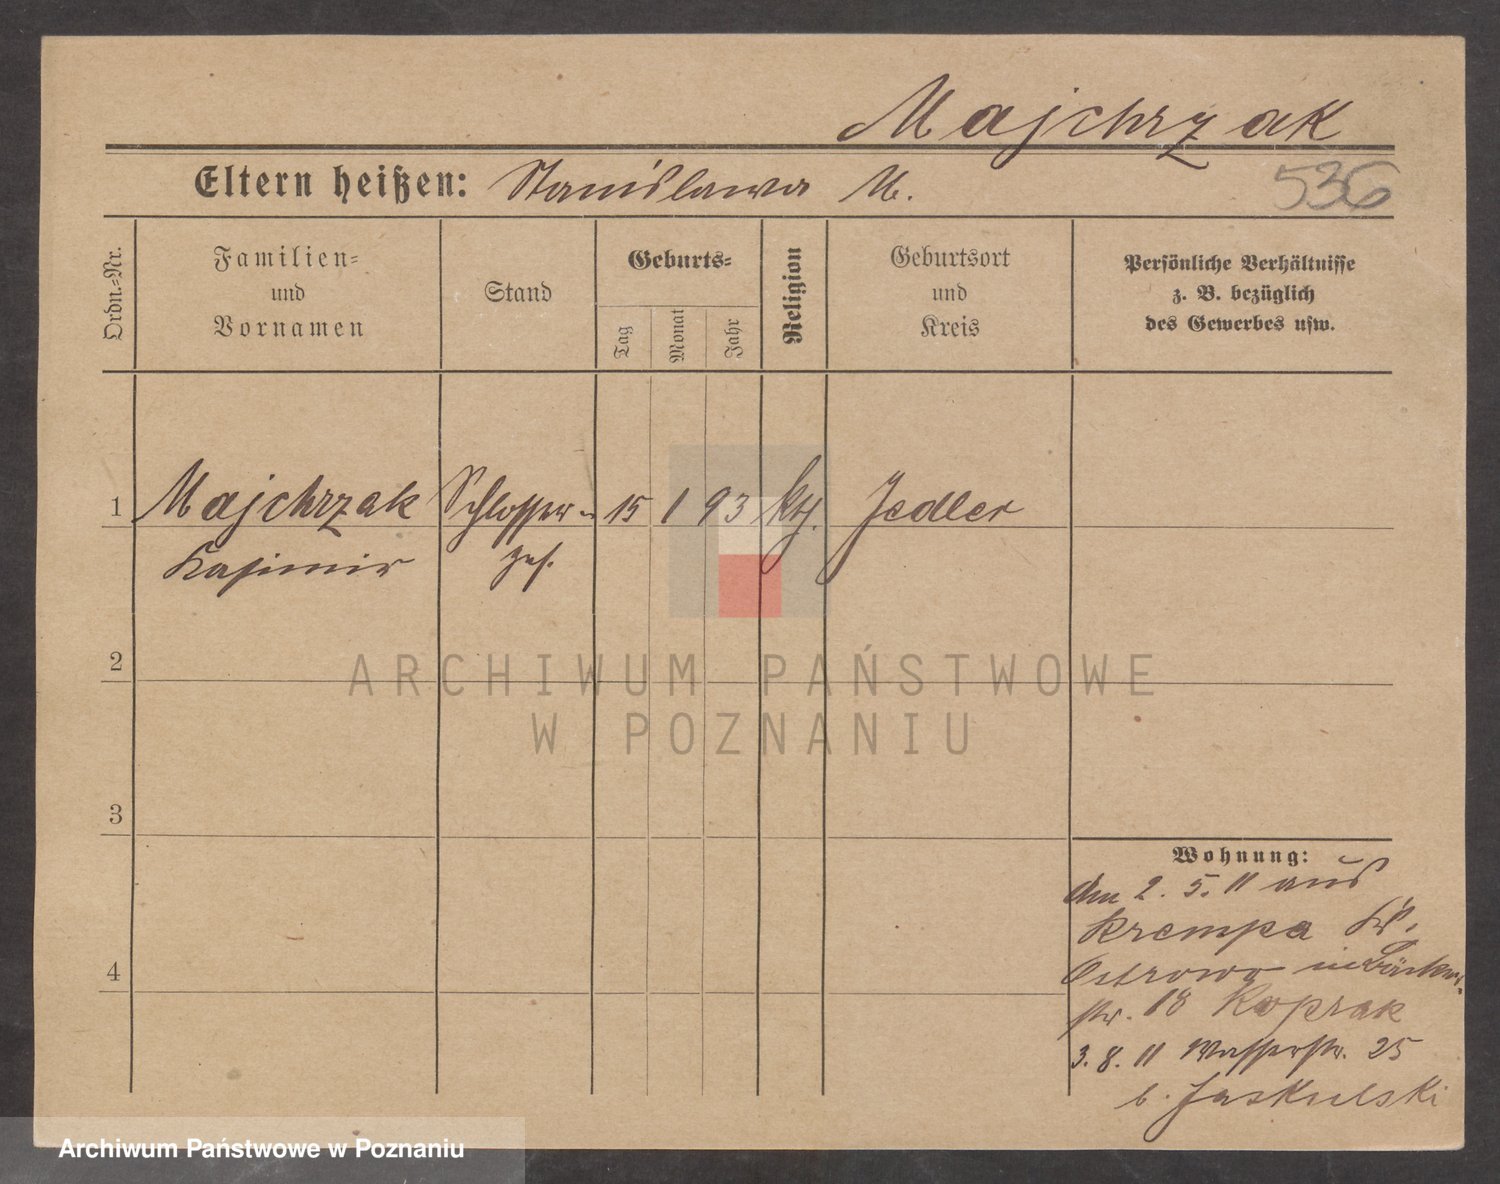 Majchrzak
Eltern heißen: Stanislawa M.
536
Ordn.-Nr.
Familien-
und
Vornamen
Stand
Geburts-
Tag
Monat
Jahr
Religion
Geburtsort
und
Kreis
Persönliche Verhältnisse
z. B. bezüglich
des Gewerbes usw.
1 Majchrzak Schlosser- 15 1 93 kth. Jedlec
Kasimir ges.
2
ARCHIWUM PAŃSTWOWE
W POZNANIU
3
Wohnung:
den 2. 5. 11 aus
Krempa Kr.
4
Ostrowo in Bäcker-
str. 18 Koprak
3. 8. 11 Wasserstr. 25
b. Jaskulski
Archiwum Państwowe w Poznaniu